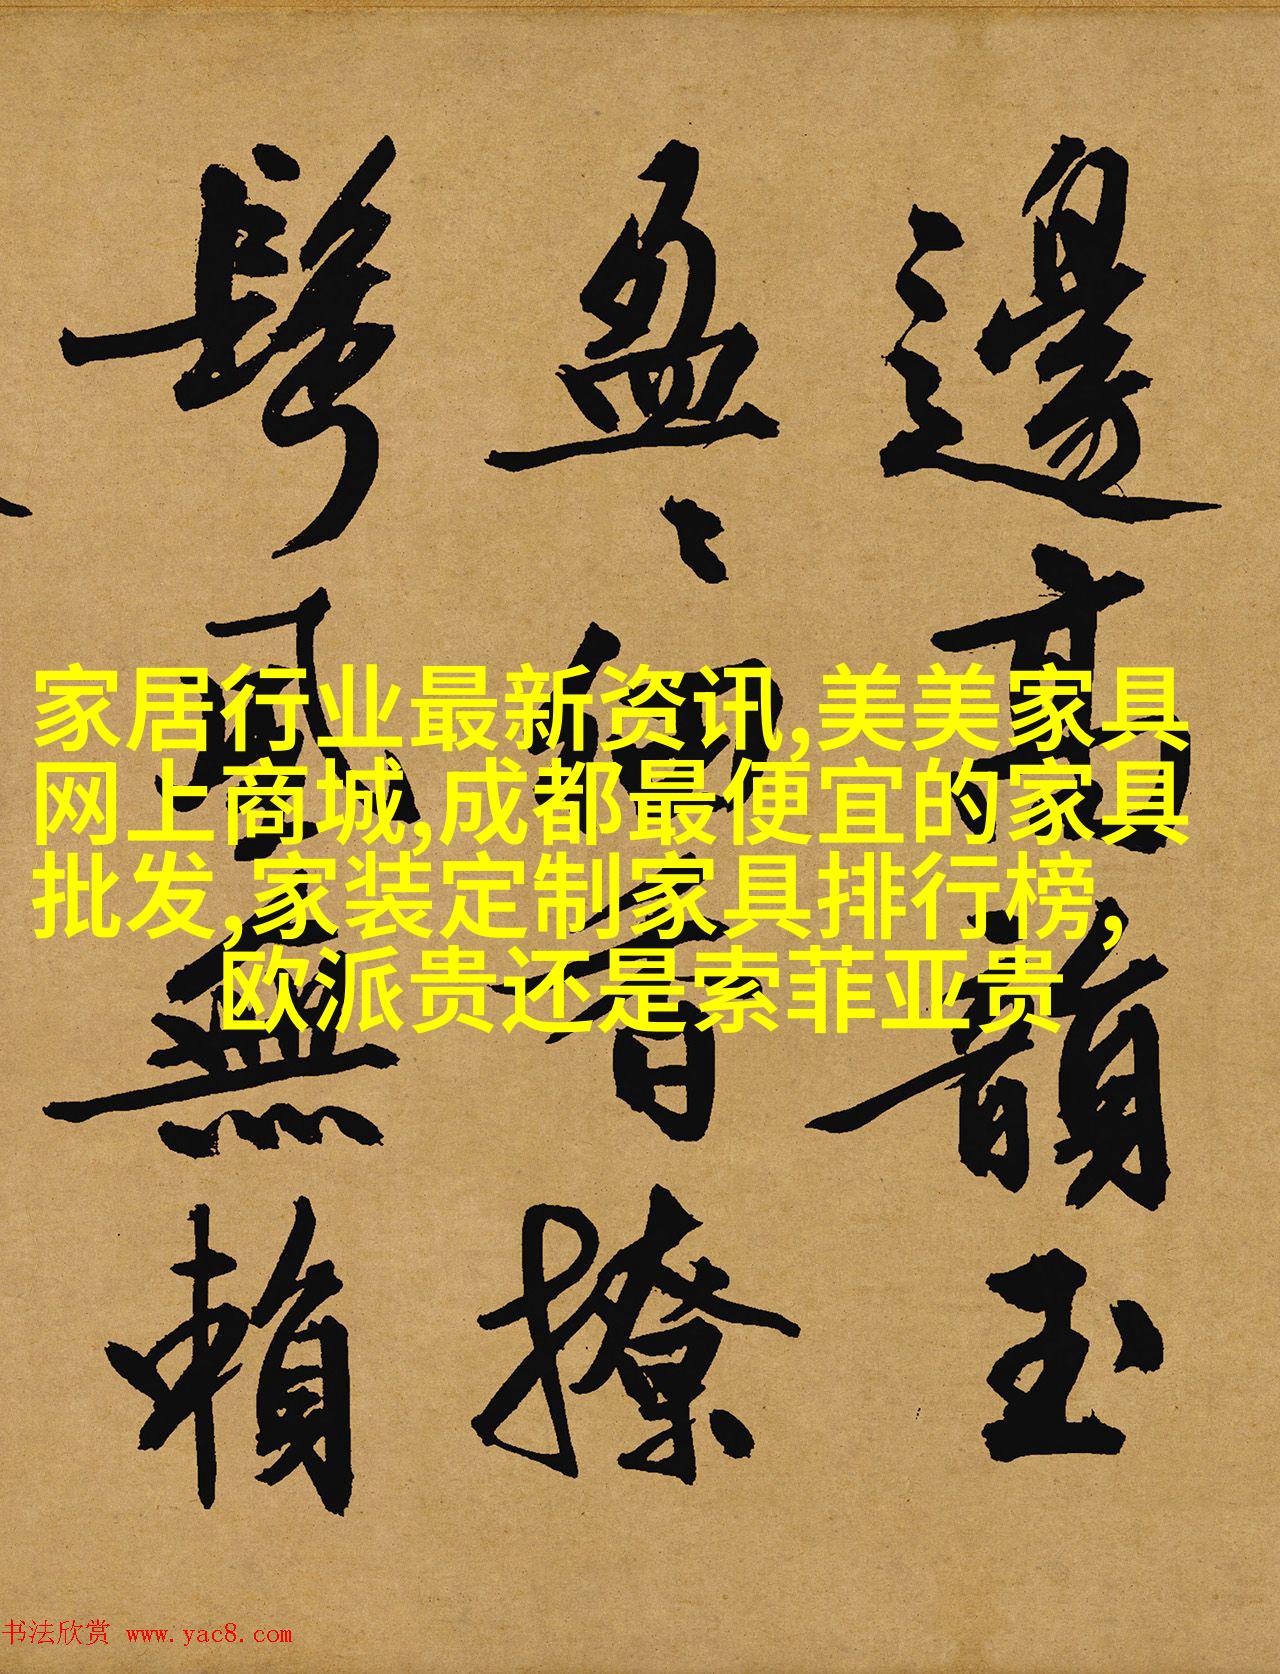 邊高韻玉
盈〻細香撩
鬢風無賴
家居行业最新资讯,美美家具
网上商城,成都最便宜的家具
批发,家装定制家具排行榜,
欧派贵还是索菲亚贵
书法欣赏 www.yac8.com